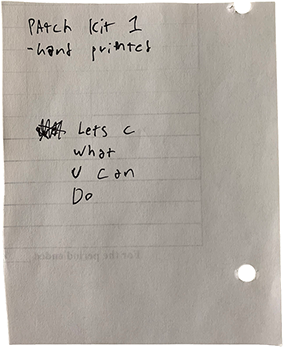 PAtch kit 1
-hand printed
Lets c
what
U Can
Do
For the period ended